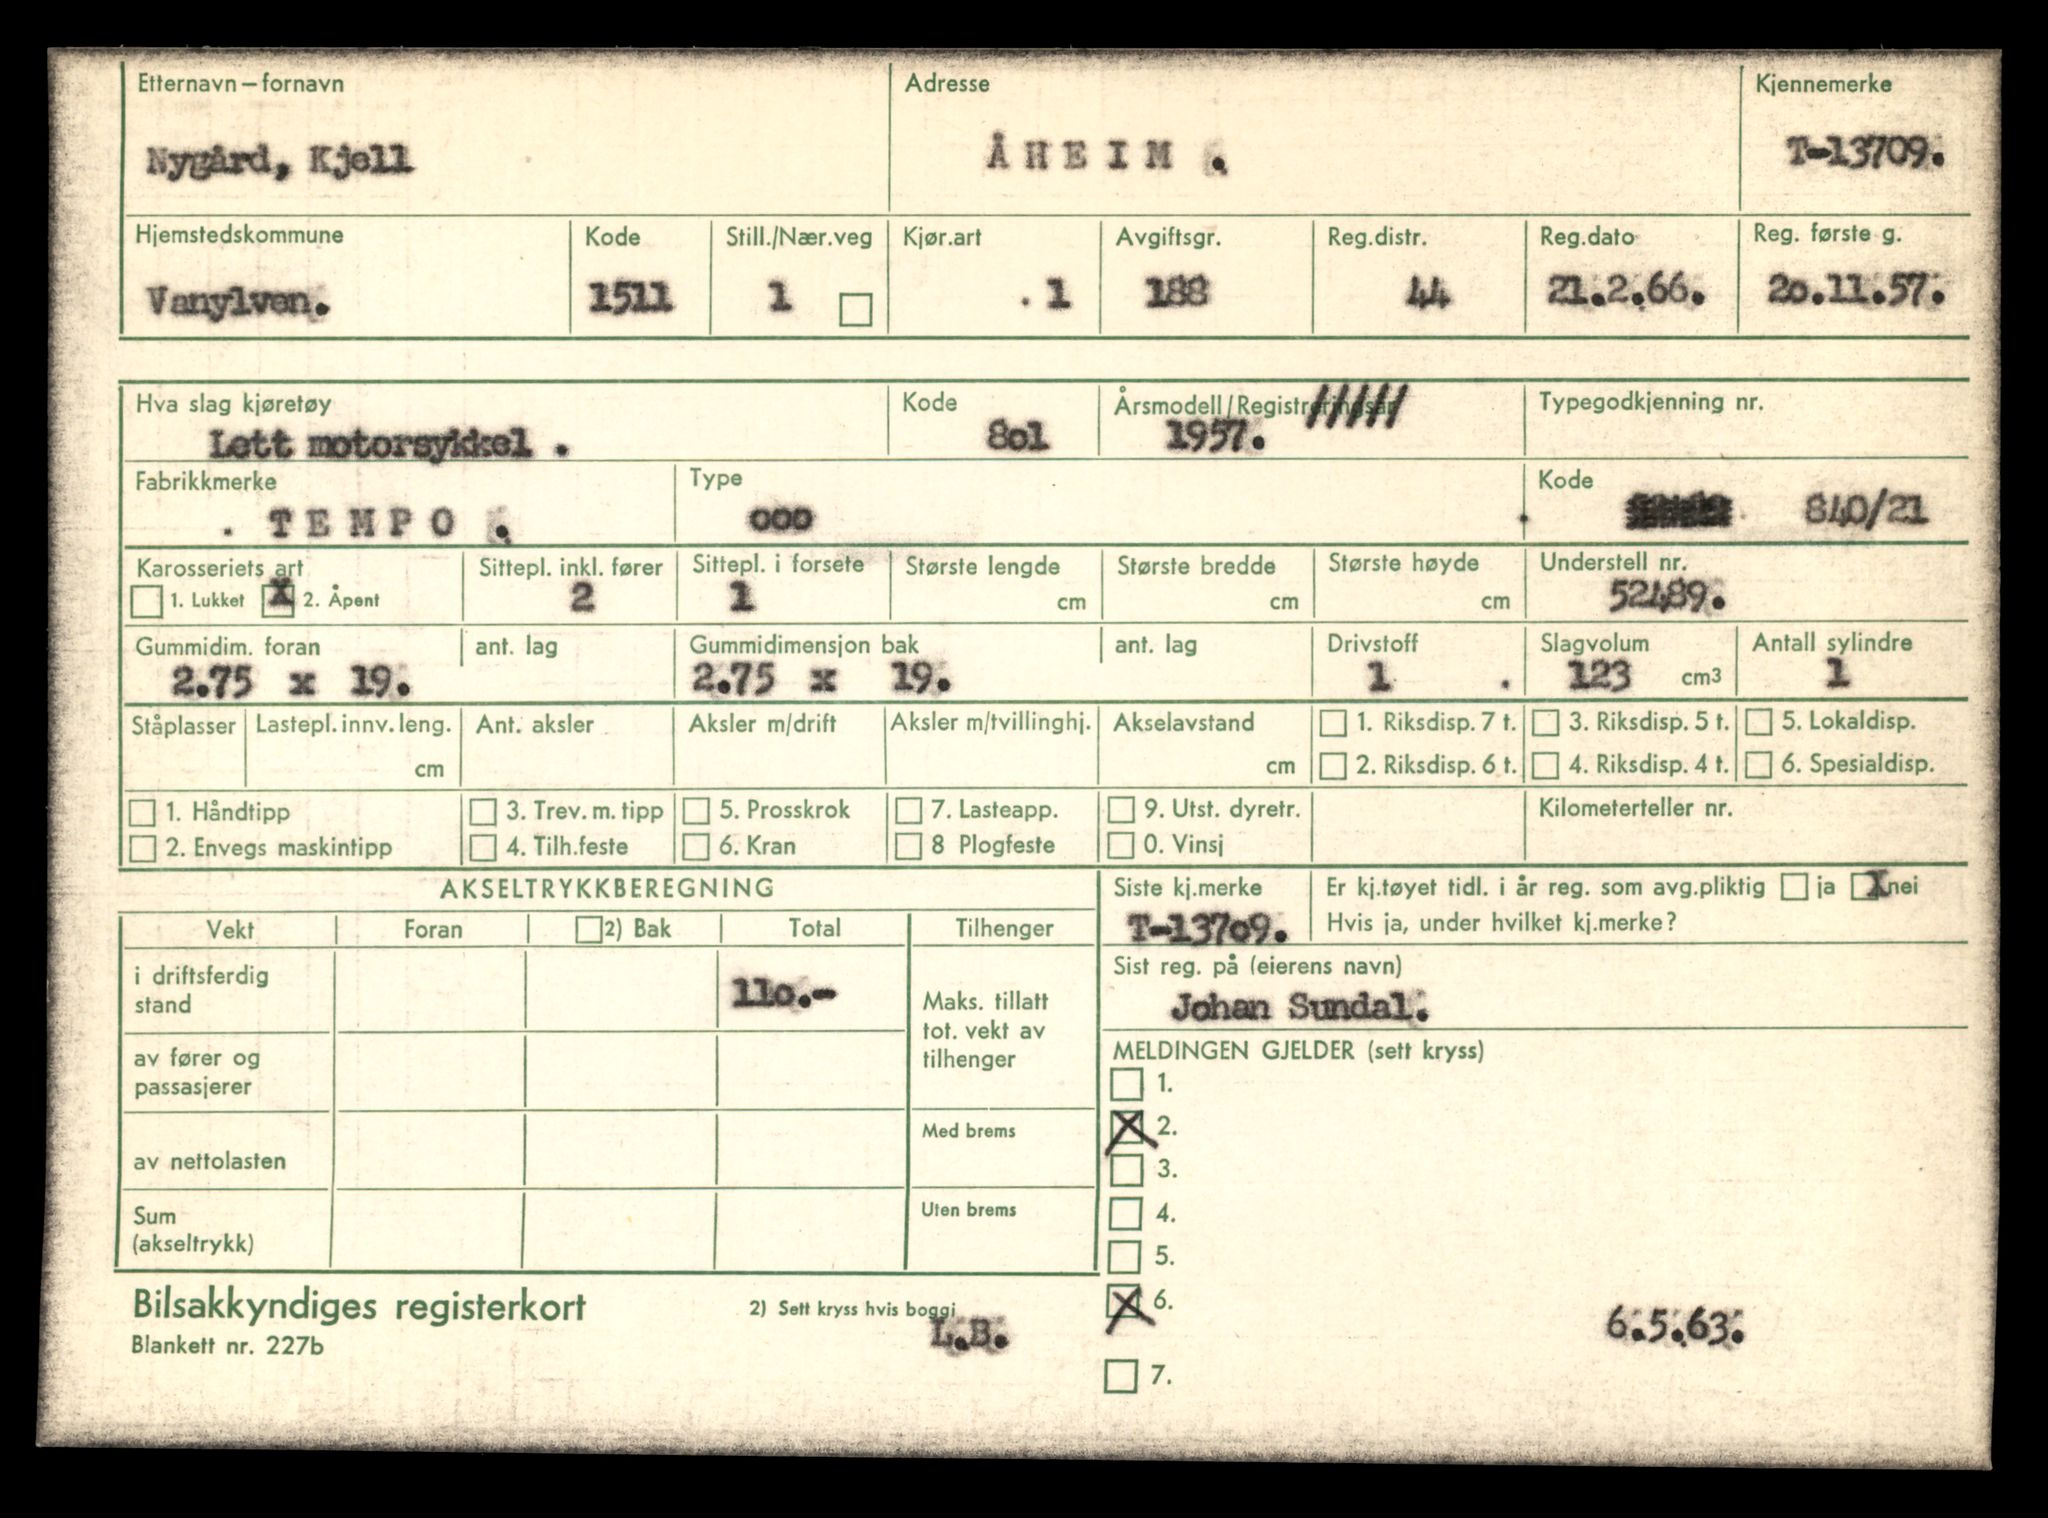 Etternavn – fornavn Adresse Kjennemerke
Nygård, Kjell ÅHEIM . T-13709.
Hjemstedskommune Kode Still./Nær.veg Kjør.art Avgiftsgr. Reg.distr. Reg.dato Reg. første g.
Vanylven. 1511 1 . 1 188 44 21.2.66. 2o.11.57.
Hva slag kjøretøy Kode Årsmodell/Registreringsår ///// Typegodkjenning nr.
Lett motorsykkel . 8o1 1957.
Fabrikkmerke Type Kode
. TEMPO . ooo . 840/21
Karosseriets art Sittepl. inkl. fører Sittepl. i forsete Største lengde Største bredde Største høyde Understell nr.
1. Lukket X 2. Åpent 2 1 cm cm cm 52489.
Gummidim. foran ant. lag Gummidimensjon bak ant. lag Drivstoff Slagvolum Antall sylindre
2.75 x 19. 2.75 x 19. 1 . 123 cm3 1
Ståplasser Lastepl. innv. leng. Ant. aksler Aksler m/drift Aksler m/tvillinghj. Akselavstand 1. Riksdisp. 7 t. 3. Riksdisp. 5 t. 5. Lokaldisp.
cm cm 2. Riksdisp. 6 t. 4. Riksdisp. 4 t. 6. Spesialdisp.
1. Håndtipp 3. Trev. m. tipp 5. Prosskrok 7. Lasteapp. 9. Utst. dyretr. Kilometerteller nr.
2. Envegs maskintipp 4. Tilh.feste 6. Kran 8 Plogfeste 0. Vinsj
AKSELTRYKKBEREGNING Siste kj.merke Er kj.tøyet tidl. i år reg. som avg.pliktig ja X nei
Vekt Foran 2) Bak Total Tilhenger T-137o9. Hvis ja, under hvilket kj.merke?
i driftsferdig
stand 11o.- Sist reg. på (eierens navn)
Maks. tillatt
tot. vekt av
tilhenger Johan Sundal.
av fører og
passasjerer MELDINGEN GJELDER (sett kryss)
1.
Med brems X 2.
av nettolasten 3.
Sum
(akseltrykk) Uten brems 4.
5.
Bilsakkyndiges registerkort 2) Sett kryss hvis boggi X 6. 6.5.63.
Blankett nr. 227b L.B.
7.